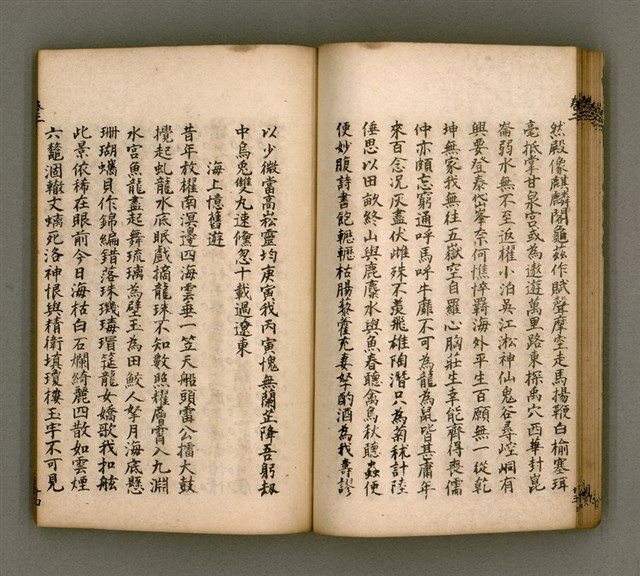 然殿像麒麟閣龜茲作賦聲摩空走馬揚鞭白榆塞珥
毫抵掌甘泉宮或為遨遊萬里路東探禹穴西華封崑
崙弱水無不至返櫂小泊吳江淞神仙鬼谷尋崆峒有
興要登泰岱峯奈何憔悴羈海外平生百願無一從乾
坤無家我無住五嶽空自羅心胸莊生幸能齊得喪儒
仲亦頗忘窮通呼馬呼牛靡不可為龍為鼠皆甚庸年
來百念况灰盡伏雌殊不羨飛雄陶潛只為菊秫計陸
倕思以田畝終山與鹿麋水與魚春聽禽鳥秋聽蟲便
便妙腹詩書飽轆轆枯腸藜藿充妻孥酌酒為我壽謬
以少微當高崧靈均庚寅我丙寅愧無蘭芷降吾躬刼
中烏兔雙九速儵忽十載過遼東
海上憶舊遊
昔年放櫂南溟邊四海雲垂一笠天船頭雷公擂大鼓
攪起虬龍水底眠戲摘龍珠不知數照耀層霄入九淵
水宮魚龍盡起舞琉璃為壁玉為田鮫人拏月海底懸
珊瑚蠣貝作錦編錯落珠璣瑇瑁筵龍女嬌歌我扣舷
此景依稀在眼前今日海枯白石爛綺麗四散如雲煙
六鼇涸轍文螭死洛神恨與精衛填瓊樓玉牢不可見
卷三